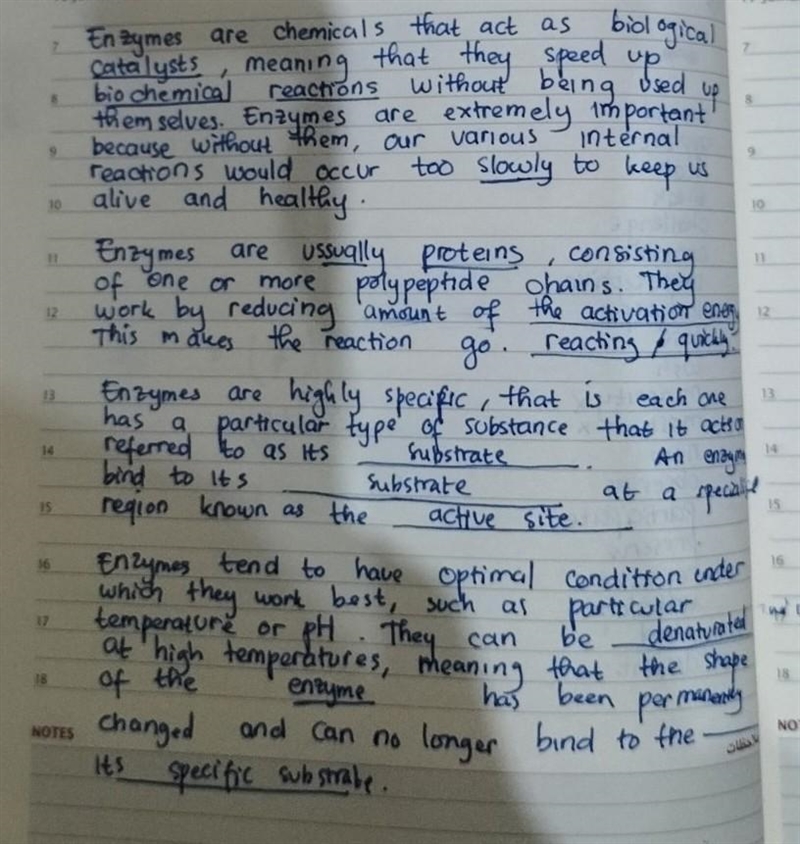 7 Enzymes are chemicals that act as biological 7
catalysts, meaning that they speed up
8 biochemical reactions without being used up 8
themselves. Enzymes are extremely important
9 because without them, our various internal 9
reactions would occur too slowly to keep us
10 alive and healthy. 10
11 Enzymes are ussually proteins, consisting 11
of one or more polypeptide chains. They
12 work by reducing amount of the activation energ 12
This makes the reaction go. reacting / quickly.
13 Enzymes are highly specific, that is each one 13
has a particular type of substance that it acts o
14 referred to as its substrate. An enzym 14
bind to its substrate at a specialif
15 region known as the active site. 15
16 Enzymes tend to have optimal condition under 16
which they work best, such as particular
17 temperature or pH. They can be denaturated
at high temperatures, meaning that the shape
18 of the enzyme has been permanently 18
NOTES changed and can no longer bind to the NO
ملاحظات
its specific substrate.